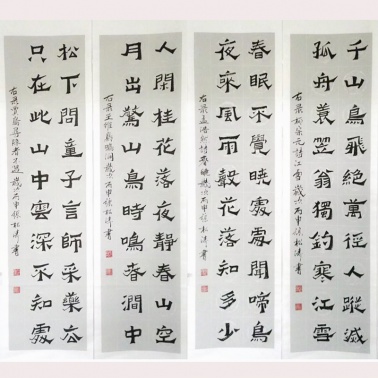 千山鳥飛絕萬徑人蹤滅
孤舟蓑笠翁獨釣寒江雪
右录柳宗元詩江雪歲次丙申徐松濤書
春眠不覺曉處處聞啼鳥
夜來風雨聲花落知多少
右录孟浩然詩春曉歲次丙申徐松濤書
人閑桂花落夜靜春山空
月出驚山鳥時鳴春澗中
右录王維鳥鳴澗歲次丙申徐松濤書
松下問童子言師采藥去
只在此山中雲深不知處
右录賈島尋隱者不遇歲次丙申徐松濤書